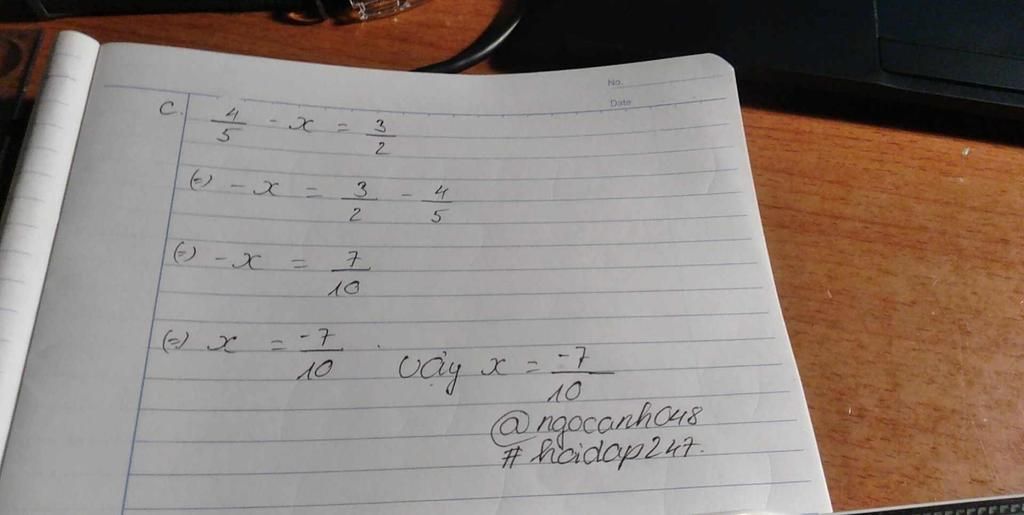 No.
Date
c. 4/5 - x = 3/2
(=) - x = 3/2 - 4/5
(=) - x = 7/10
(=) x = -7/10 . Vậy x = -7/10
@ngocanh048
# hoidap247.